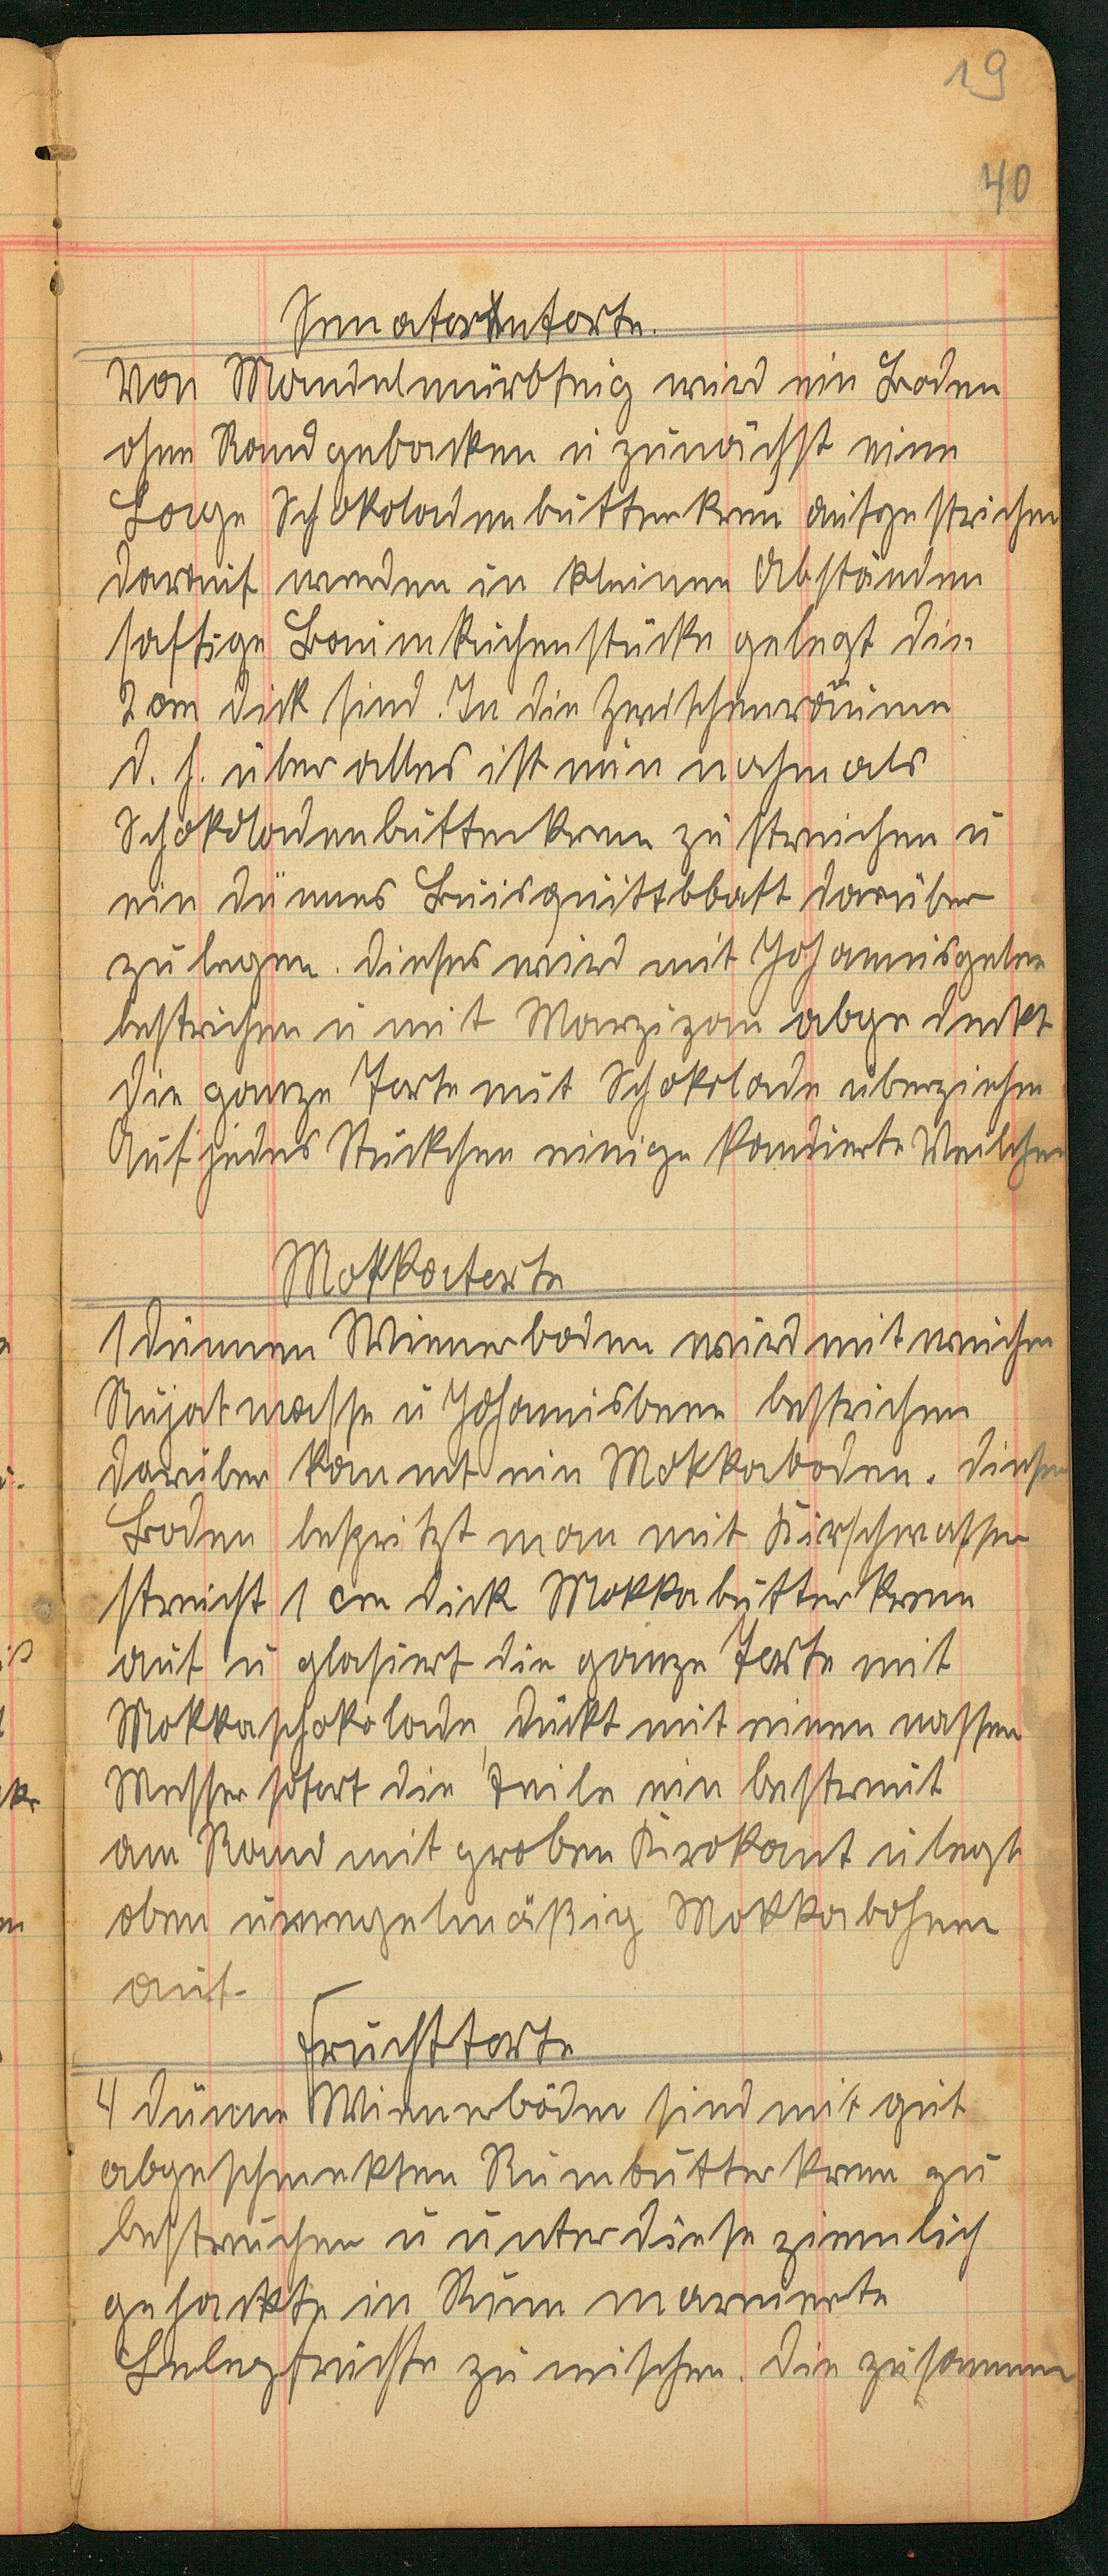 19
40
Senatorentorte.
Von Mandelmürbteig wird ein Boden
ohne Rand gebacken u zunächst eine
Lage Schokoladenbutterkrem aufgestrichen
darauf werden in kleinen Abständen
saftige Baumkuchenstücke gelegt die
2 cm dick sind. In die Zwischenräume
d. h. über alles ist nun nohmals
Schokoladenbutterkrem zu streichen u
ein dünnes Buisquittblatt darüber
zu legen. Dieses wird mit Johannisgelee
bestrichen u mit Marzizan abgedeckt
die ganze Torte mit Schokolade überziehen
Auf jedes Stückchen einige kandierte Veilchen
Mokkatorte
1 dünnen Wienerboden wird mit weichen
Nujatmasse u Johannisbeere bestrichen
darüber kommt ein Mokkaboden. Diesen
Boden bespritzt man mit Kirschwasser
streicht 1 cm dick Mokkabutterkrem
auf u glasiert die ganze Torte mit
Mokkaschokolade, dückt mit einen nassen
Messer sofort die Teile ein bestreut
am Rand mit groben Krokant u legt
oben unregelmäßig Mokkabohnen
auf.
Fruchttorte
4 dünne Wienerböden sind mit gut
abgeschmekten Rumbutterkrem zu
bestreichen u unter diese ziemlich
gehackte in Rum marinierte
Belegfrüchte zu mischen. Die zusammen